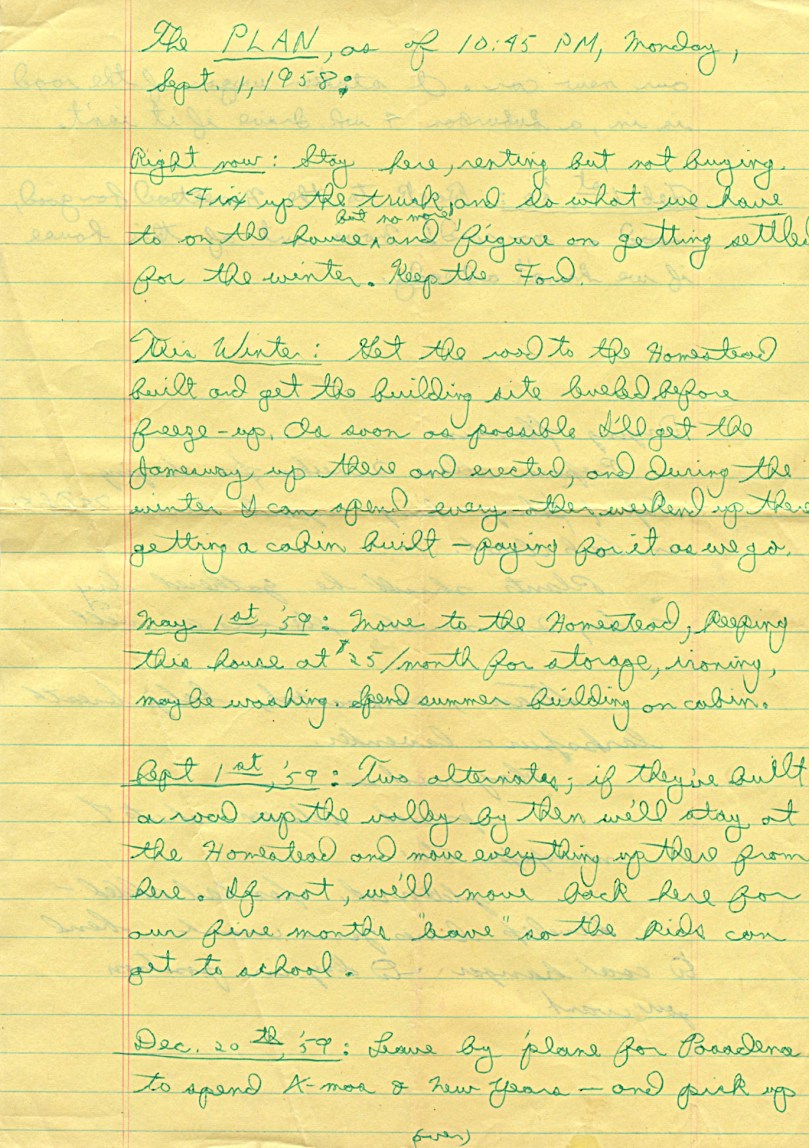 The PLAN, as of 10:45 PM, Monday,
Sept. 1, 1958:
Right now: Stay here, renting but not buying.
Fix up the truck, and do what we have
but no more,
to on the house, and figure on getting settled
for the winter. Keep the Ford.
This Winter: Get the road to the Homestead
built and get the building site leveled before
freeze-up. As soon as possible I'll get the
Jamesway up there and erected, and during the
winter I can spend every-other weekend up there
getting a cabin built — paying for it as we go.
May 1st, '59: Move to the Homestead, keeping
this house at $25/month for storage, ironing,
maybe washing. Spend summer building on cabin.
Sept 1st, '59: Two alternates; if they've built
a road up the valley by then we'll stay at
the Homestead and move everything up there from
here. If not, we'll move back here for
our five months "leave" so the kids can
get to school.
Dec. 20th, '59: Leave by plane for Pasadena
to spend X-mas & New Years — and pick up
(over)